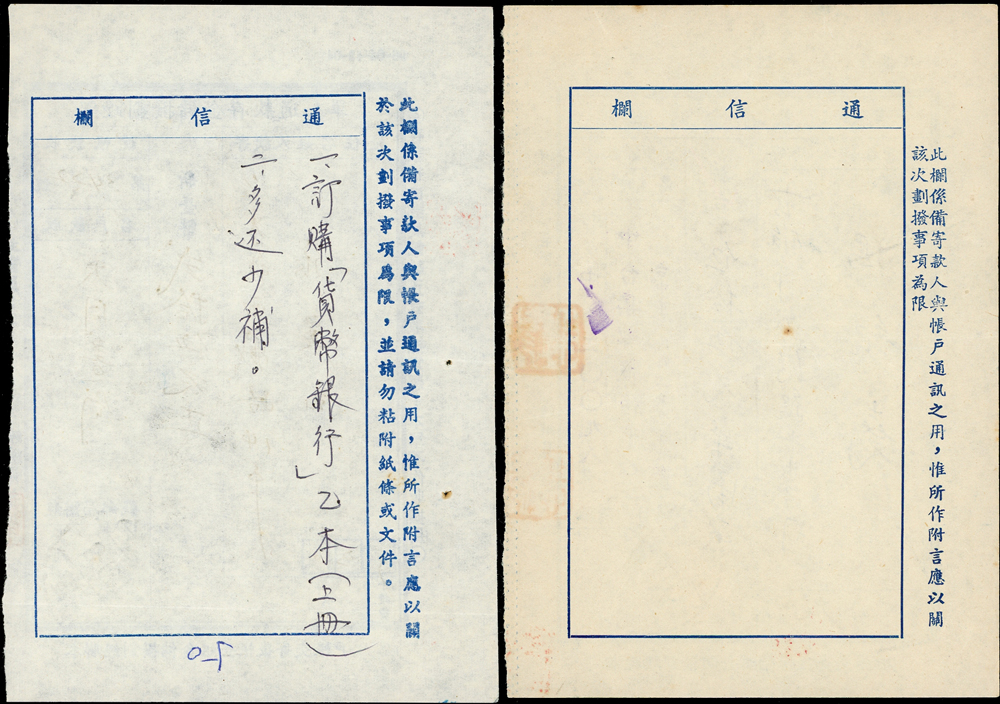 此欄係備寄款人與帳戶通訊之用，惟所作附言應以關
於該次劃撥事項為限，並請勿粘附紙條或文件。
通信欄
一、訂購「貨幣銀行」乙本（上冊）
二、多还少補。
此欄係備寄款人與帳戶通訊之用，惟所作附言應以關
該次劃撥事項為限
通信欄